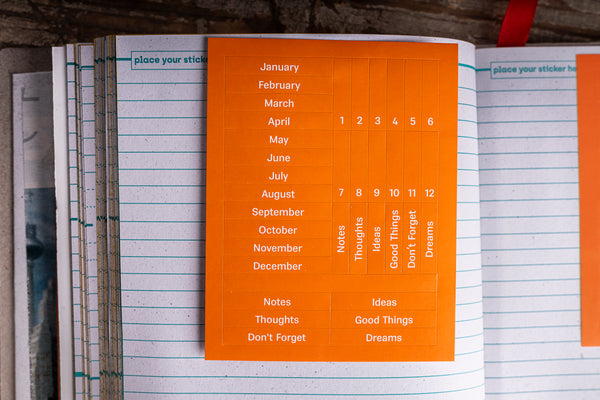 place your sticker
place your sticker
January
February
March
April
May
June
July
August
September
October
November
December
1 2 3 4 5 6
7 8 9 10 11 12
Notes
Thoughts
Ideas
Good Things
Don't Forget
Dreams
Notes Ideas
Thoughts Good Things
Don't Forget Dreams